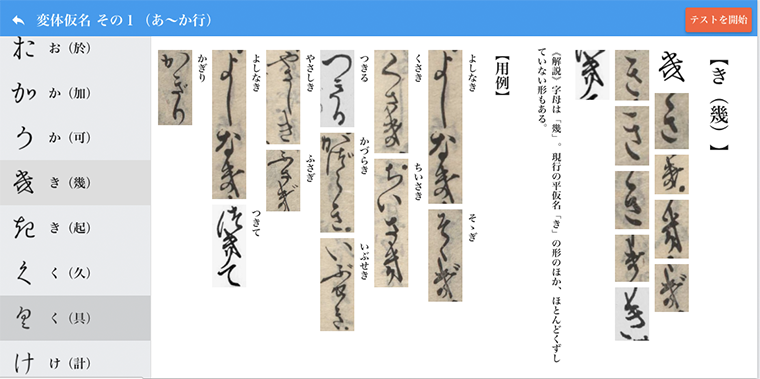 変体仮名 その１（あ～か行）
テストを開始
お（於）
か（加）
か（可）
き（幾）
き（起）
く（久）
く（具）
け（計）
【き（幾）】
《解説》字母は「幾」。現行の平仮名「き」の形のほか、ほとんどくずし
ていない形もある。
【用例】
よしなき
そゝぎ
くさき
ちいさき
つきる
かづらき
いぶせき
やさしき
ふさぎ
よしなき
つきて
かぎり